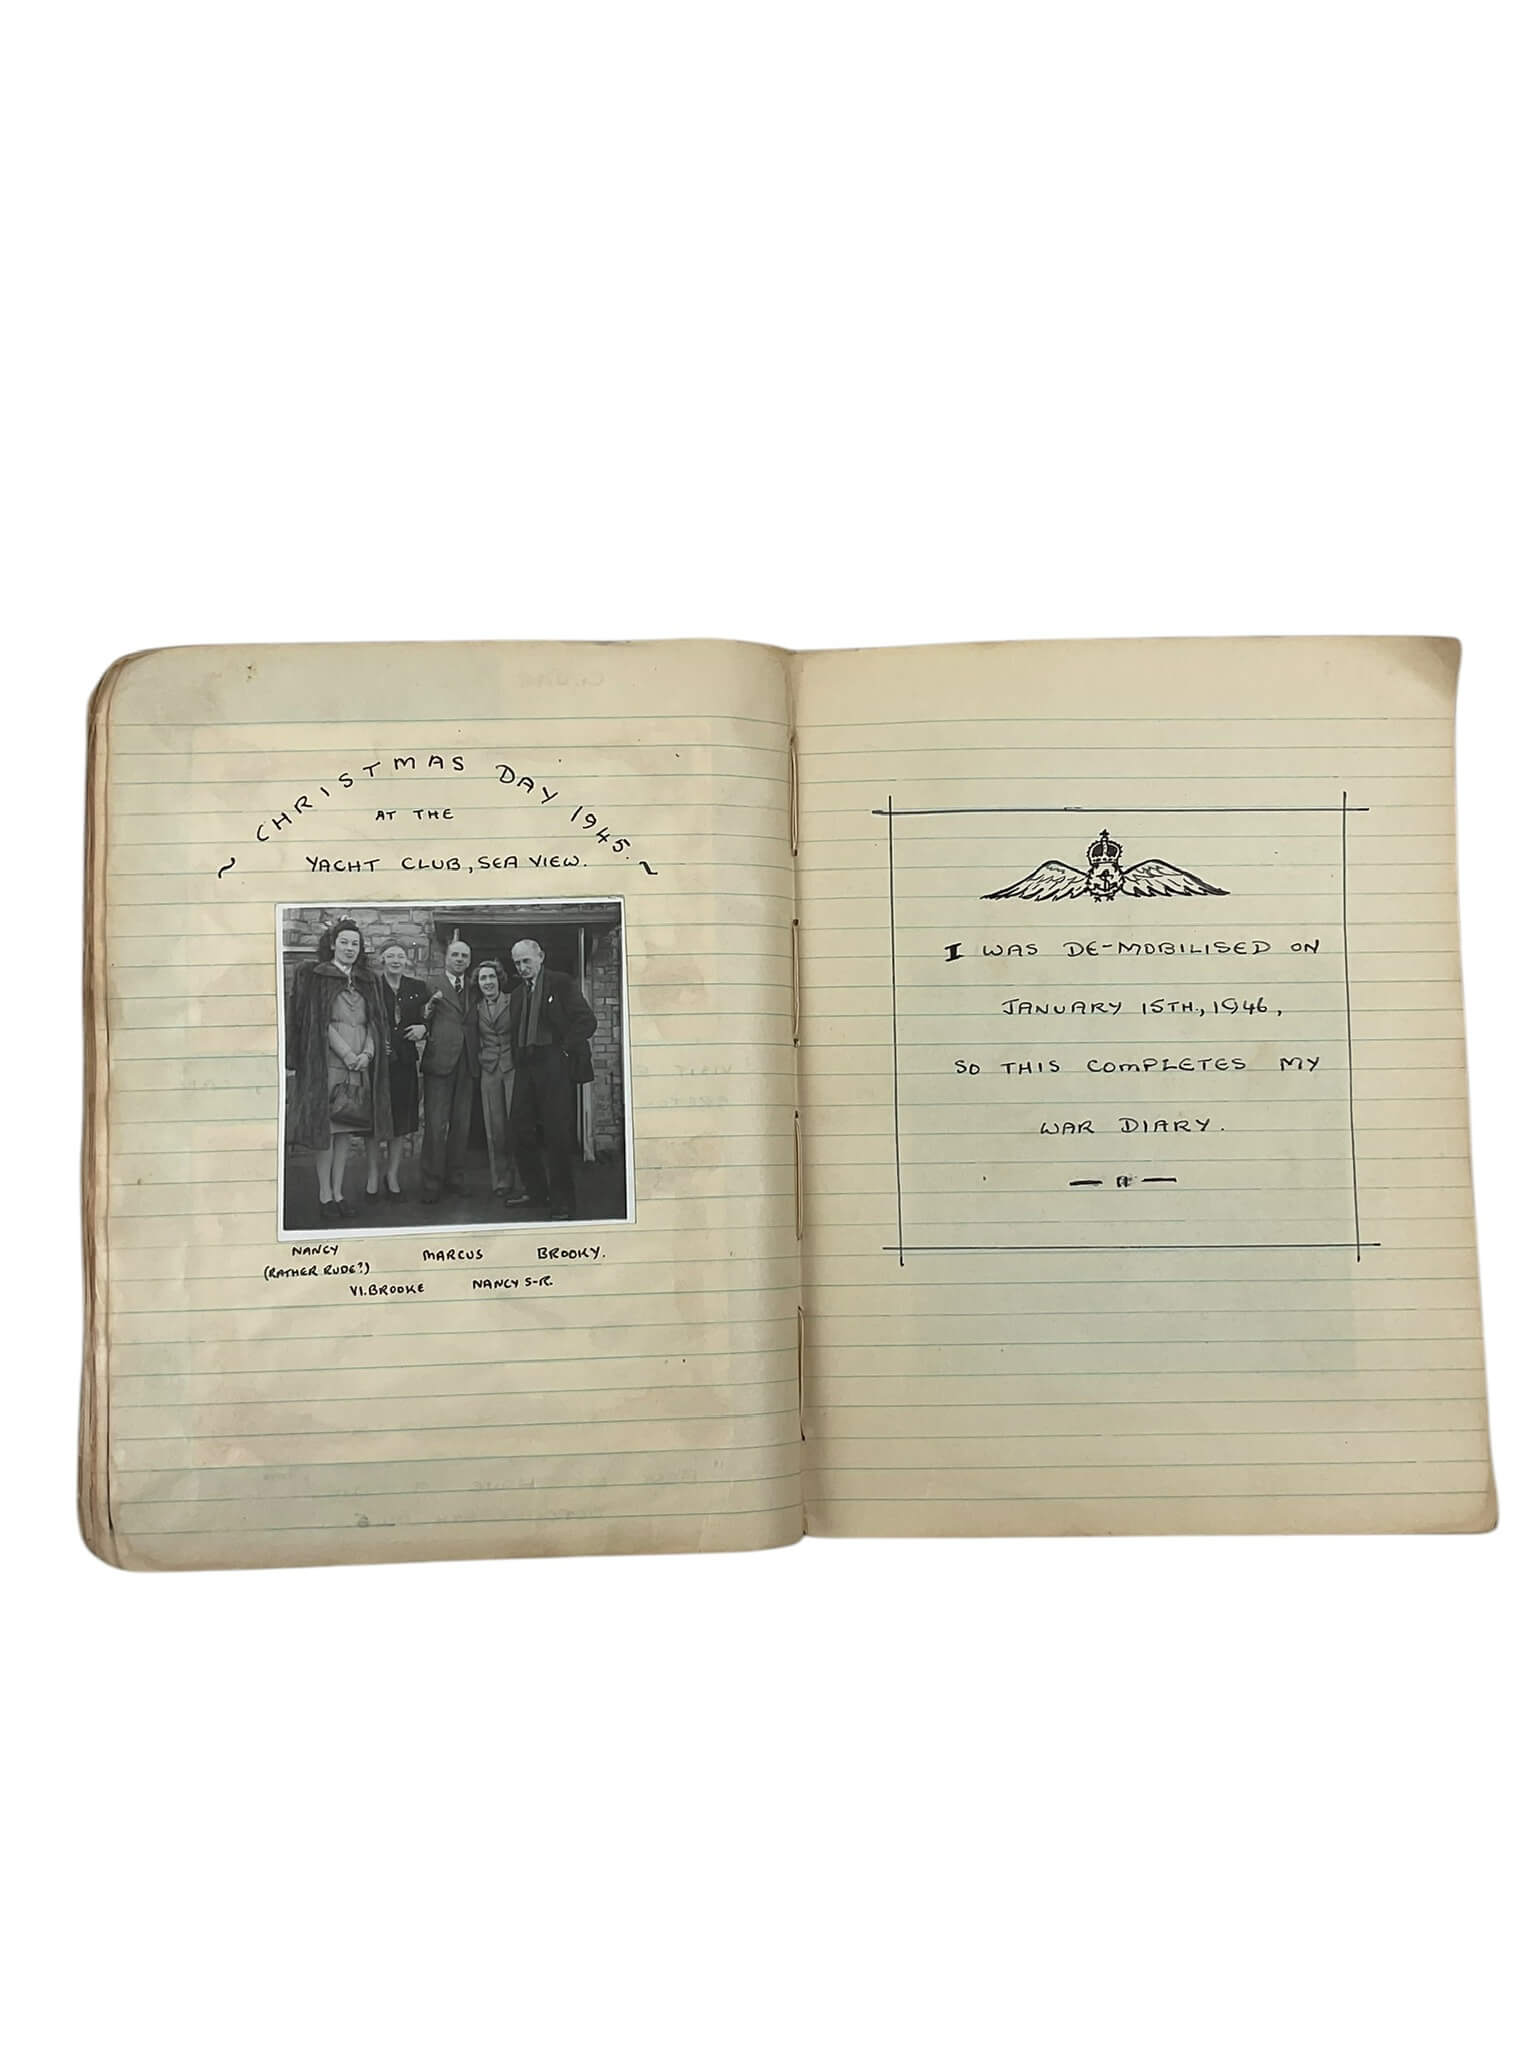 ~ CHRISTMAS DAY 1945. ~
AT THE
YACHT CLUB, SEA VIEW.
NANCY MARCUS BROOKY.
(RATHER RUDE?)
VI. BROOKE NANCY S-R.
I WAS DE-MOBILISED ON
JANUARY 15TH., 1946,
SO THIS COMPLETES MY
WAR DIARY.